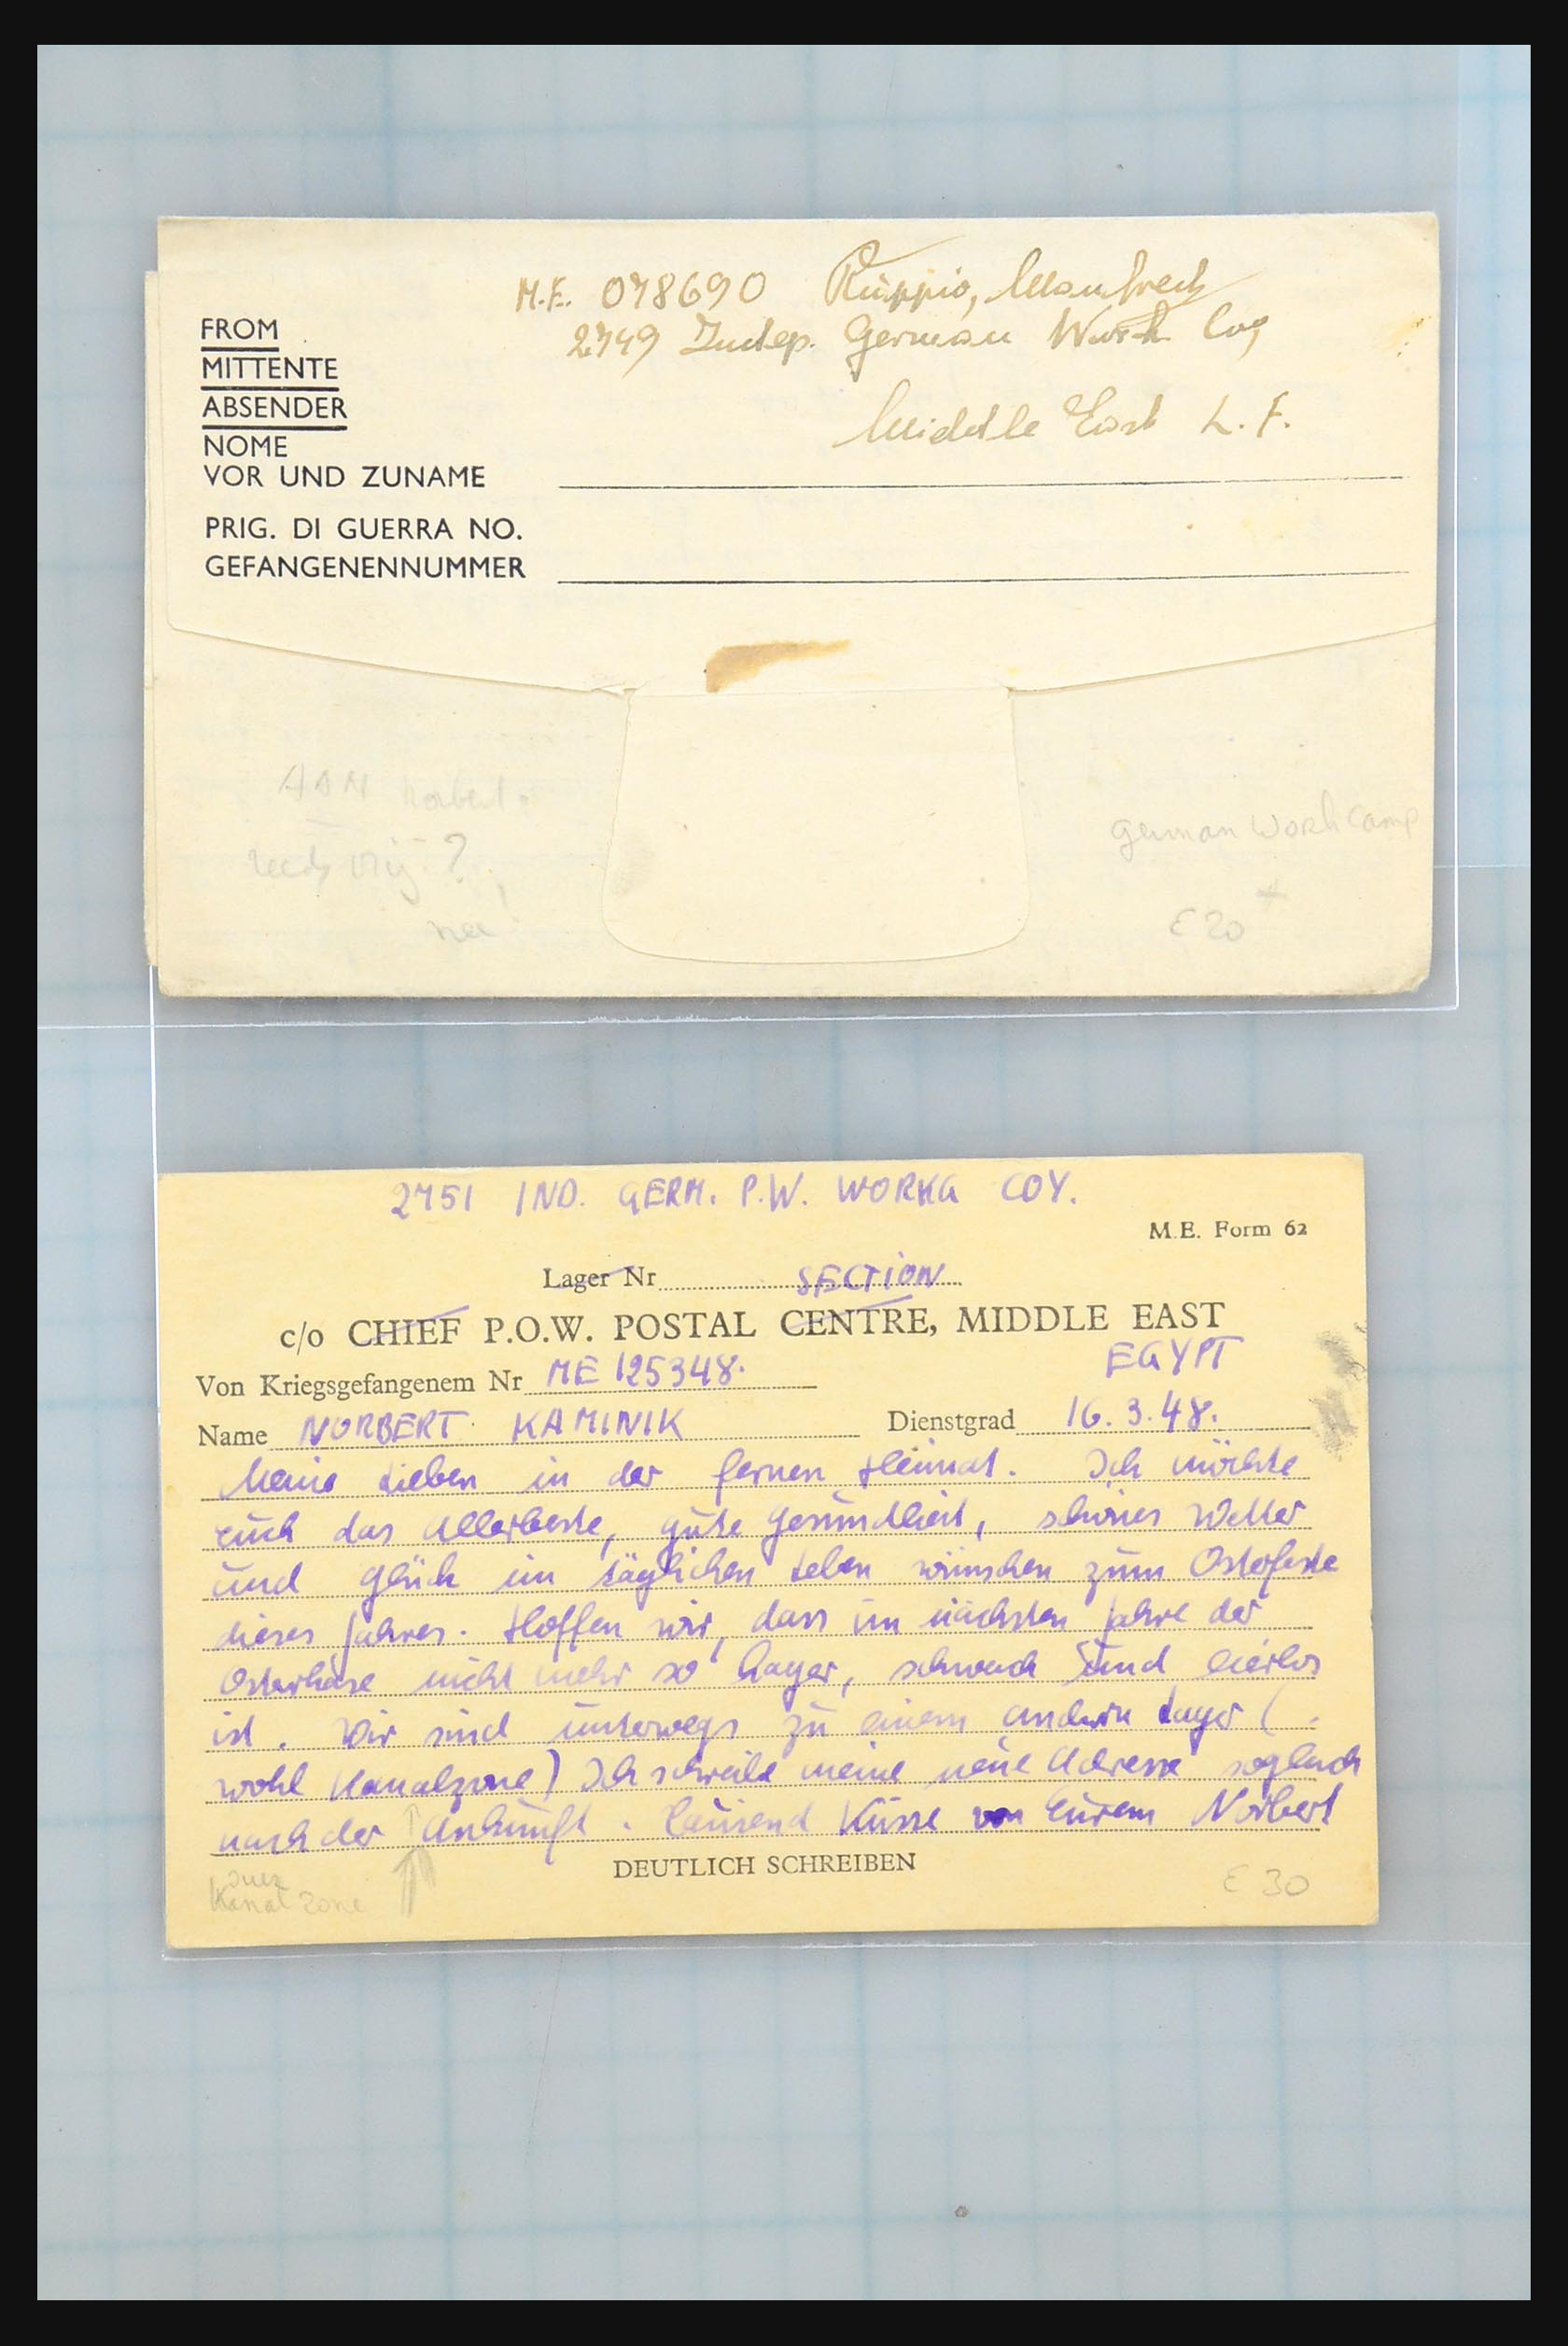 M.E. 078690 Ruppio, Manfred
2749 Indep. German Work Coy
Middle East L.F.
FROM
MITTENTE
ABSENDER
NOME
VOR UND ZUNAME
PRIG. DI GUERRA NO.
GEFANGENENNUMMER
German Work Camp
E 20
2751 IND. GERM. P.W. WORKG COY.
M.E. Form 62
Lager Nr SECTION
c/o CHIEF P.O.W. POSTAL CENTRE, MIDDLE EAST
EGYPT
Von Kriegsgefangenem Nr ME 125348.
Name NORBERT KAMINIK Dienstgrad 16.3.48.
Meine Lieben in der fernen Heimat. Ich möchte
euch das Allerbeste, gute Gesundheit, schönes Wetter
und Glück im täglichen Leben wünschen zum Osterfeste
dieses Jahres. Hoffen wir, dass im nächsten Jahre der
Osterhase nicht mehr so hager, schwach und eierlos
ist. Wir sind unterwegs zu einem andern Lager (
wohl Kanalzone) Ich schreibe meine neue Adresse sogleich
nach der Ankunft. Tausend Küsse von Eurem Norbert
DEUTLICH SCHREIBEN
Suez
Kanal zone
E 30